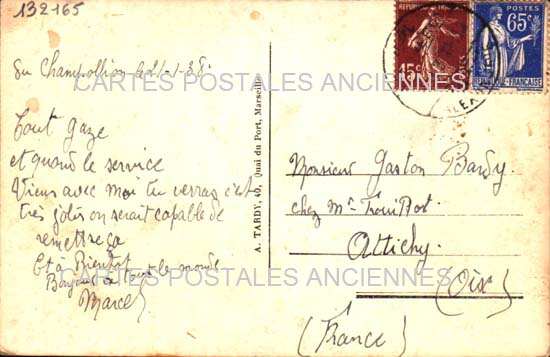 132165
Du Champollion 21-1-38.
Tout gaze
et quand le service
Viens avec moi tu verras c'est
très joli on serait capable de
remettre ça
Et à Bientôt
Bonjour à tout le monde
Marcel
A. TARDY, 40, Quai du Port, Marseille
REPUBLIQUE
15c
POSTES
65c
REPUBLIQUE FRANÇAISE
Monsieur Gaston Bardy.
chez Mr
Attichy.
(Oise)
(France)
CARTES POSTALES ANCIENNES
CARTES POSTALES ANCIENNES